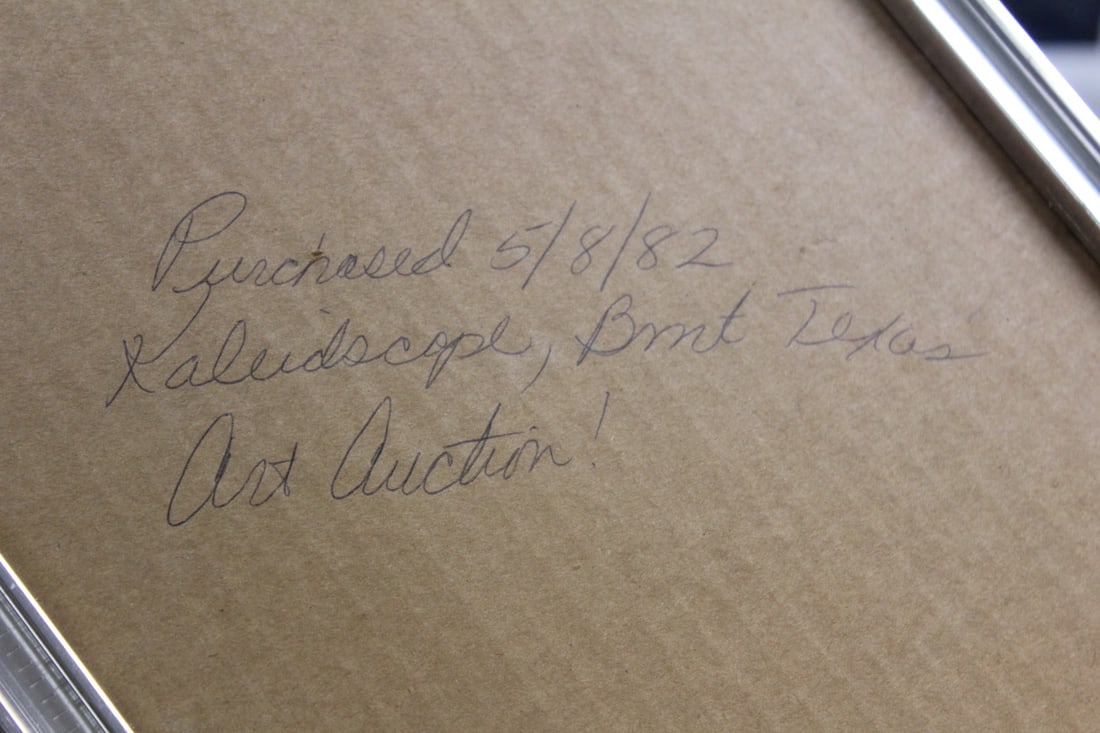 Purchased 5/8/82
Kaleidscope, Bmt Texas
Art Auction!